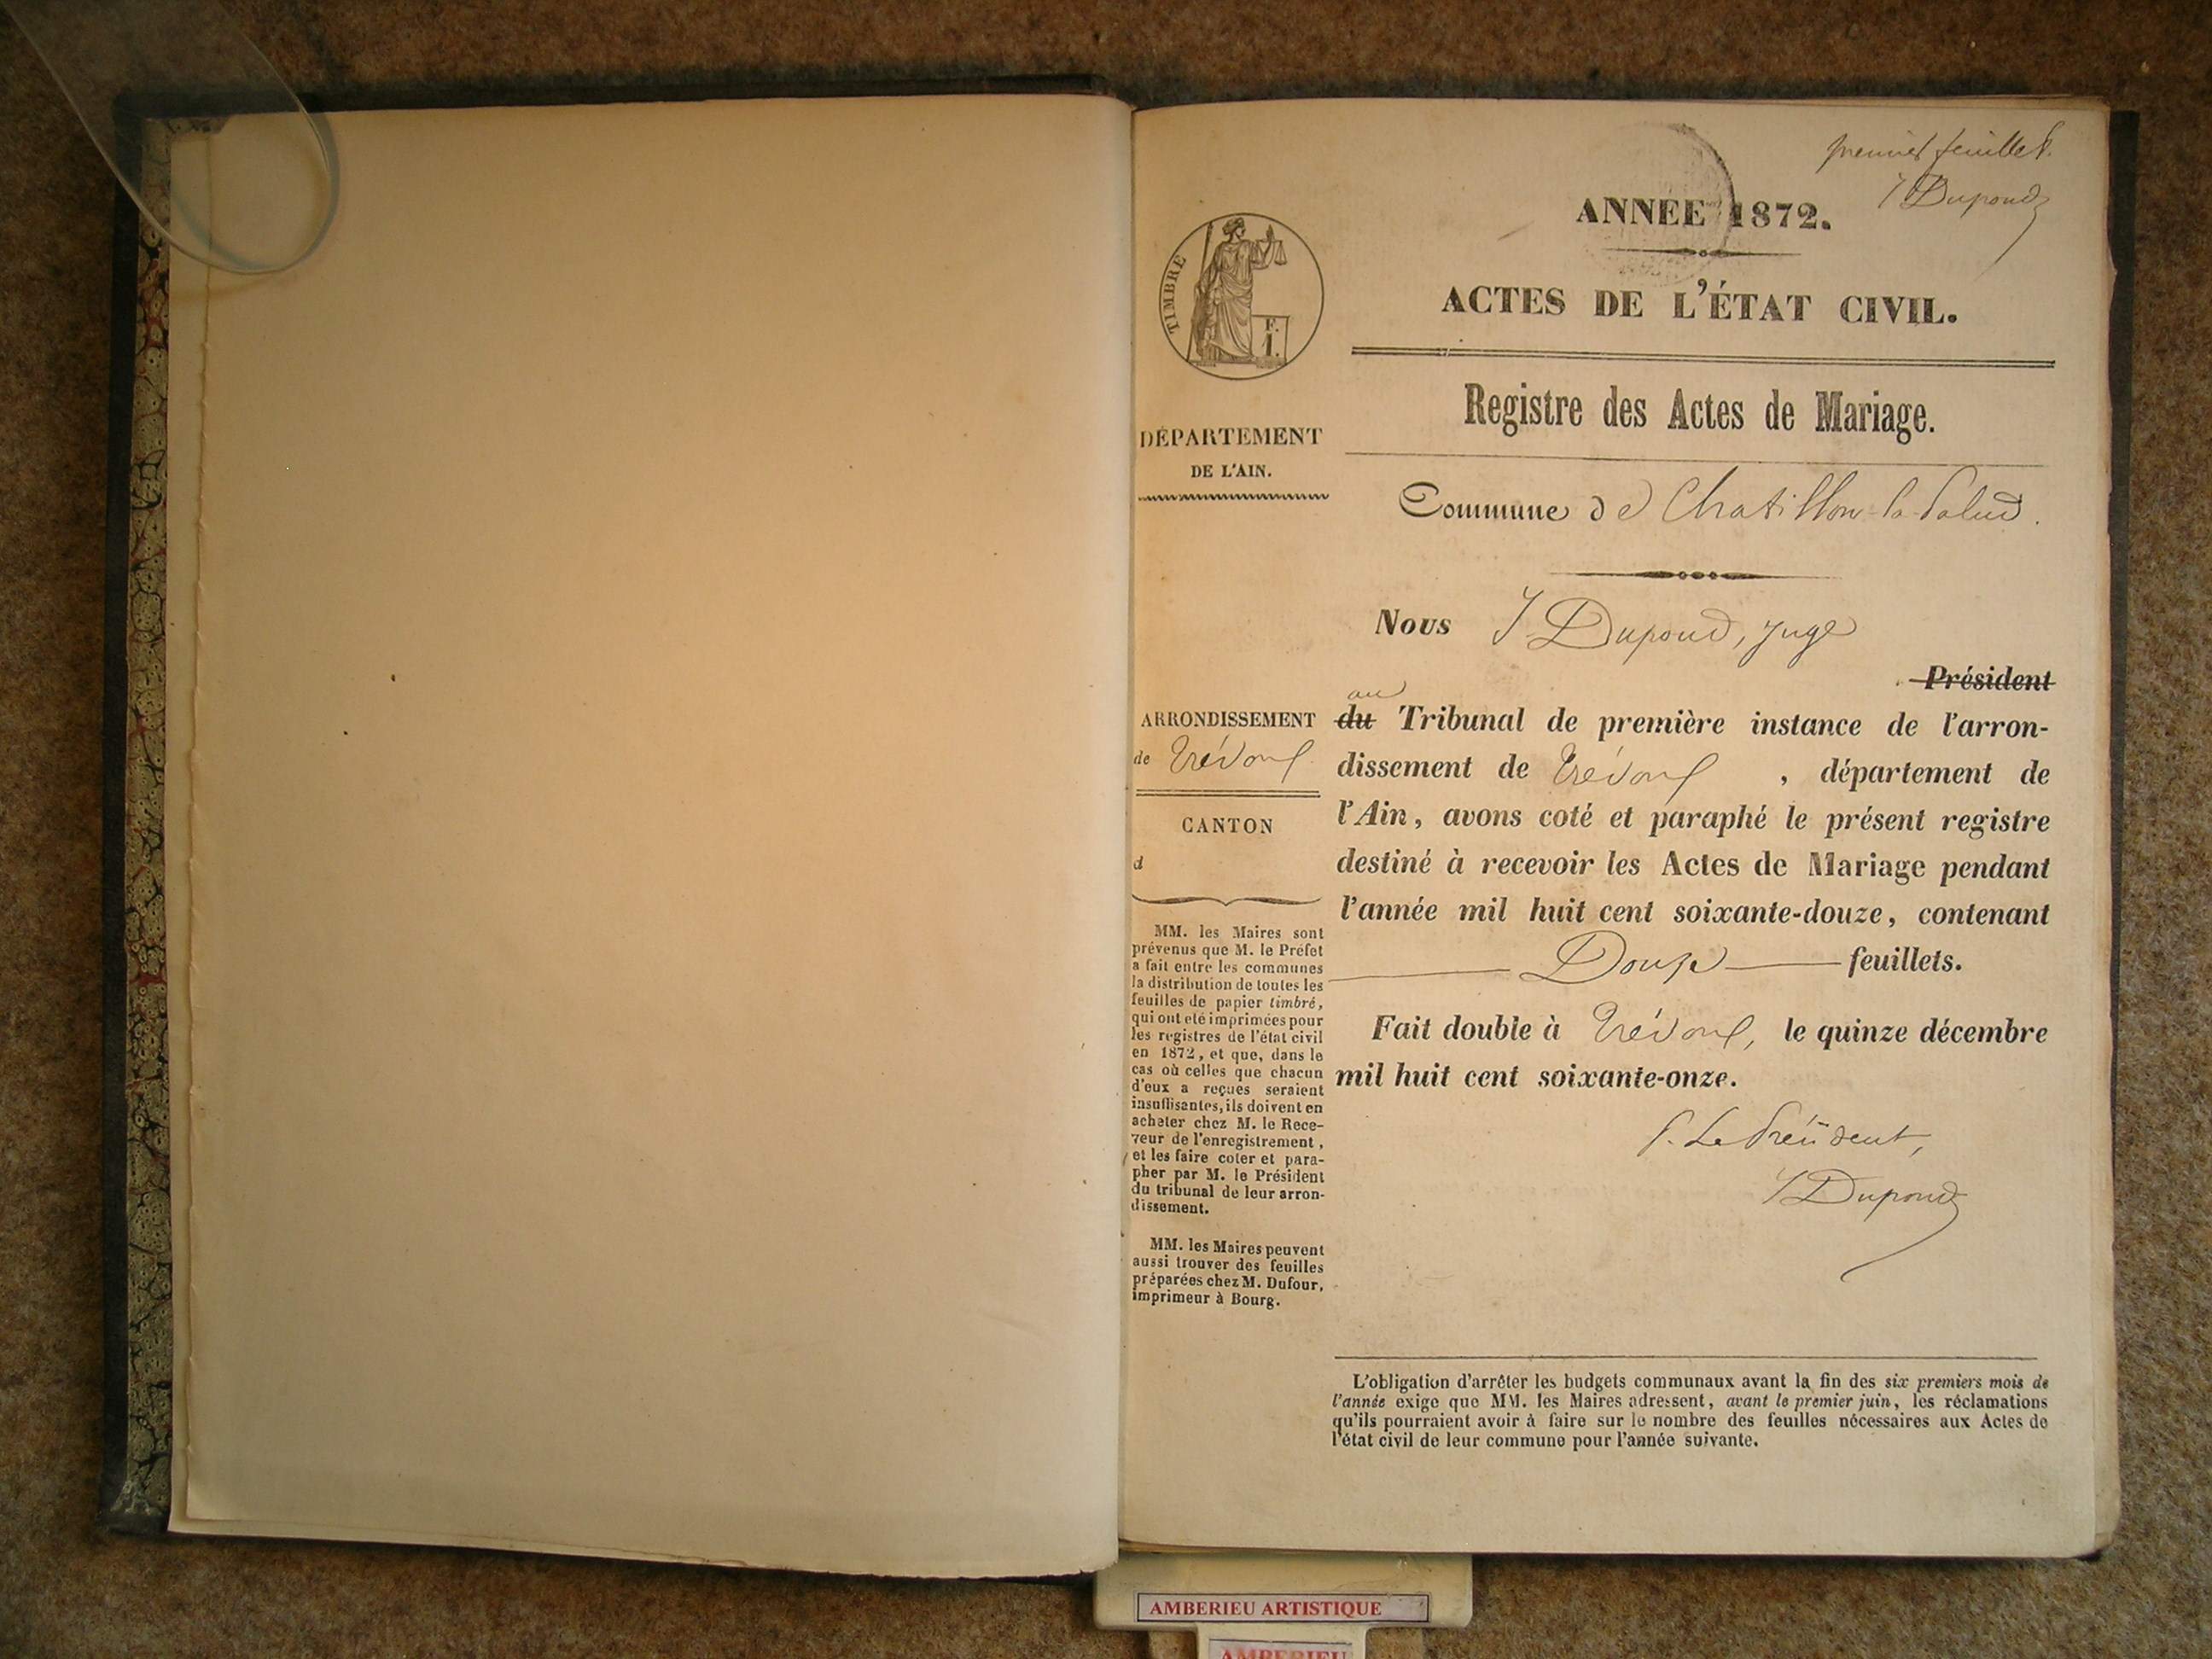 premier feuillet.
J Dupond
ANNÉE 1872.
ACTES DE L'ÉTAT CIVIL.
Registre des Actes de Mariage.
Commune de Chatillon la Palud.
Nous J Dupond, juge
Président
au
du Tribunal de première instance de l'arron-
dissement de Trévoux, département de
l'Ain, avons coté et paraphé le présent registre
destiné à recevoir les Actes de Mariage pendant
l'année mil huit cent soixante-douze, contenant
Douze feuillets.
Fait double à Trévoux, le quinze décembre
mil huit cent soixante-onze.
P. Le Président,
J Dupond
L'obligation d'arrêter les budgets communaux avant la fin des six premiers mois de
l'année exige que MM. les Maires adressent, avant le premier juin, les réclamations
qu'ils pourraient avoir à faire sur le nombre des feuilles nécessaires aux Actes de
l'état civil de leur commune pour l'année suivante.
TIMBRE
F.
1.
DÉPARTEMENT
DE L'AIN.
ARRONDISSEMENT
de Trévoux
CANTON
d
MM. les Maires sont
prévenus que M. le Préfet
a fait entre les communes
la distribution de toutes les
feuilles de papier timbré,
qui ont été imprimées pour
les registres de l'état civil
en 1872, et que, dans le
cas où celles que chacun
d'eux a reçues seraient
insuffisantes, ils doivent en
acheter chez M. le Rece-
veur de l'enregistrement,
et les faire coter et para-
pher par M. le Président
du tribunal de leur arron-
dissement.
MM. les Maires peuvent
aussi trouver des feuilles
préparées chez M. Dufour,
imprimeur à Bourg.
AMBERIEU ARTISTIQUE
AMBERIEU